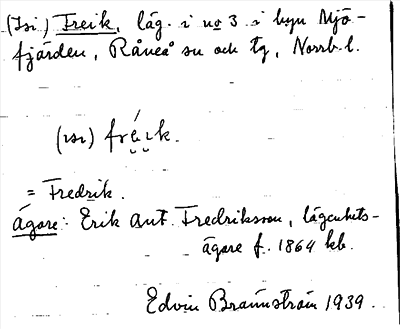 (Isi) Freik, läg. i no 3 i byn Mjö-
fjärden, Råneå sn och tg, Norrb. l.
(ısı) fréık.
= Fredrik.
Ägare: Erik Ant. Fredriksson, lägenhets-
ägare f. 1864 kb.
Edvin Brännström 1939.